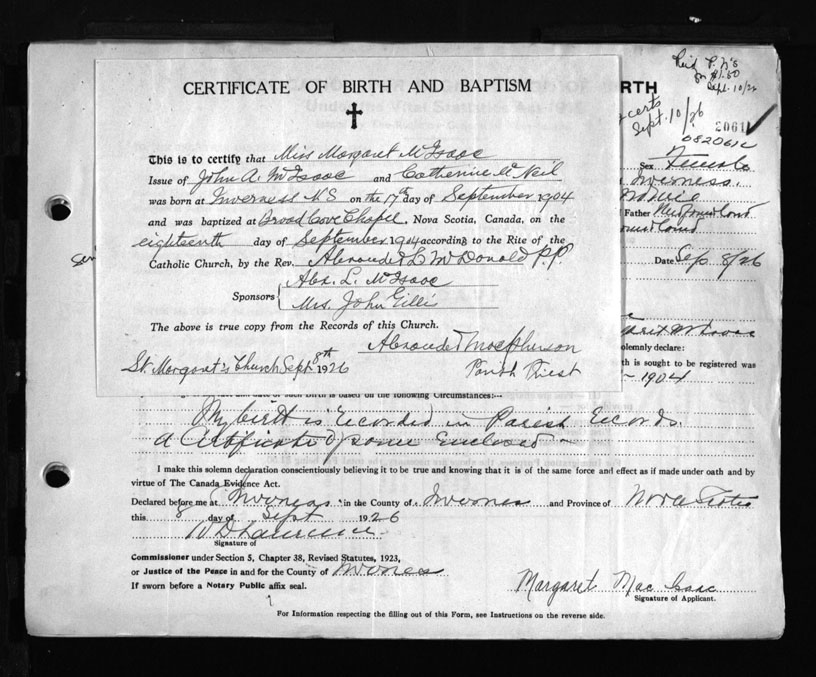 CERTIFICATE OF BIRTH AND BAPTISM
This is to certify that Miss Margaret McIsaac
Issue of John A. McIsaac and Catherine McNeil
was born at Inverness N.S on the 17th day of September 1904
and was baptized at Broad Cove Chapel, Nova Scotia, Canada, on the
eighteenth day of September 1904 according to the Rite of the
Catholic Church, by the Rev. Alexander L McDonald P.P.
Alex. L. McIsaac
Sponsors
Mrs. John Gillis
The above is true copy from the Records of this Church.
Alexander Macpherson
St. Margaret's Church Sept 8th 1926 Parish Priest
RTH
Sept. 10/26
2061
082061
Sex Female
Inverness
Father
Date Sep. 8/26
olemnly declare:
th is sought to be registered was
1904
such Birth is based on the following Circumstances:—
My birth is recorded in Parish records.
A Certificate of same enclosed
I make this solemn declaration conscientiously believing it to be true and knowing that it is of the same force and effect as if made under oath and by
virtue of The Canada Evidence Act.
Declared before me at Inverness in the County of Inverness and Province of Nova Scotia
this 8 day of Sept 1926
Signature of
Commissioner under Section 5, Chapter 38, Revised Statutes, 1923,
or Justice of the Peace in and for the County of Inverness
If sworn before a Notary Public affix seal.
Margaret Mac Isaac
Signature of Applicant.
For Information respecting the filling out of this Form, see Instructions on the reverse side.